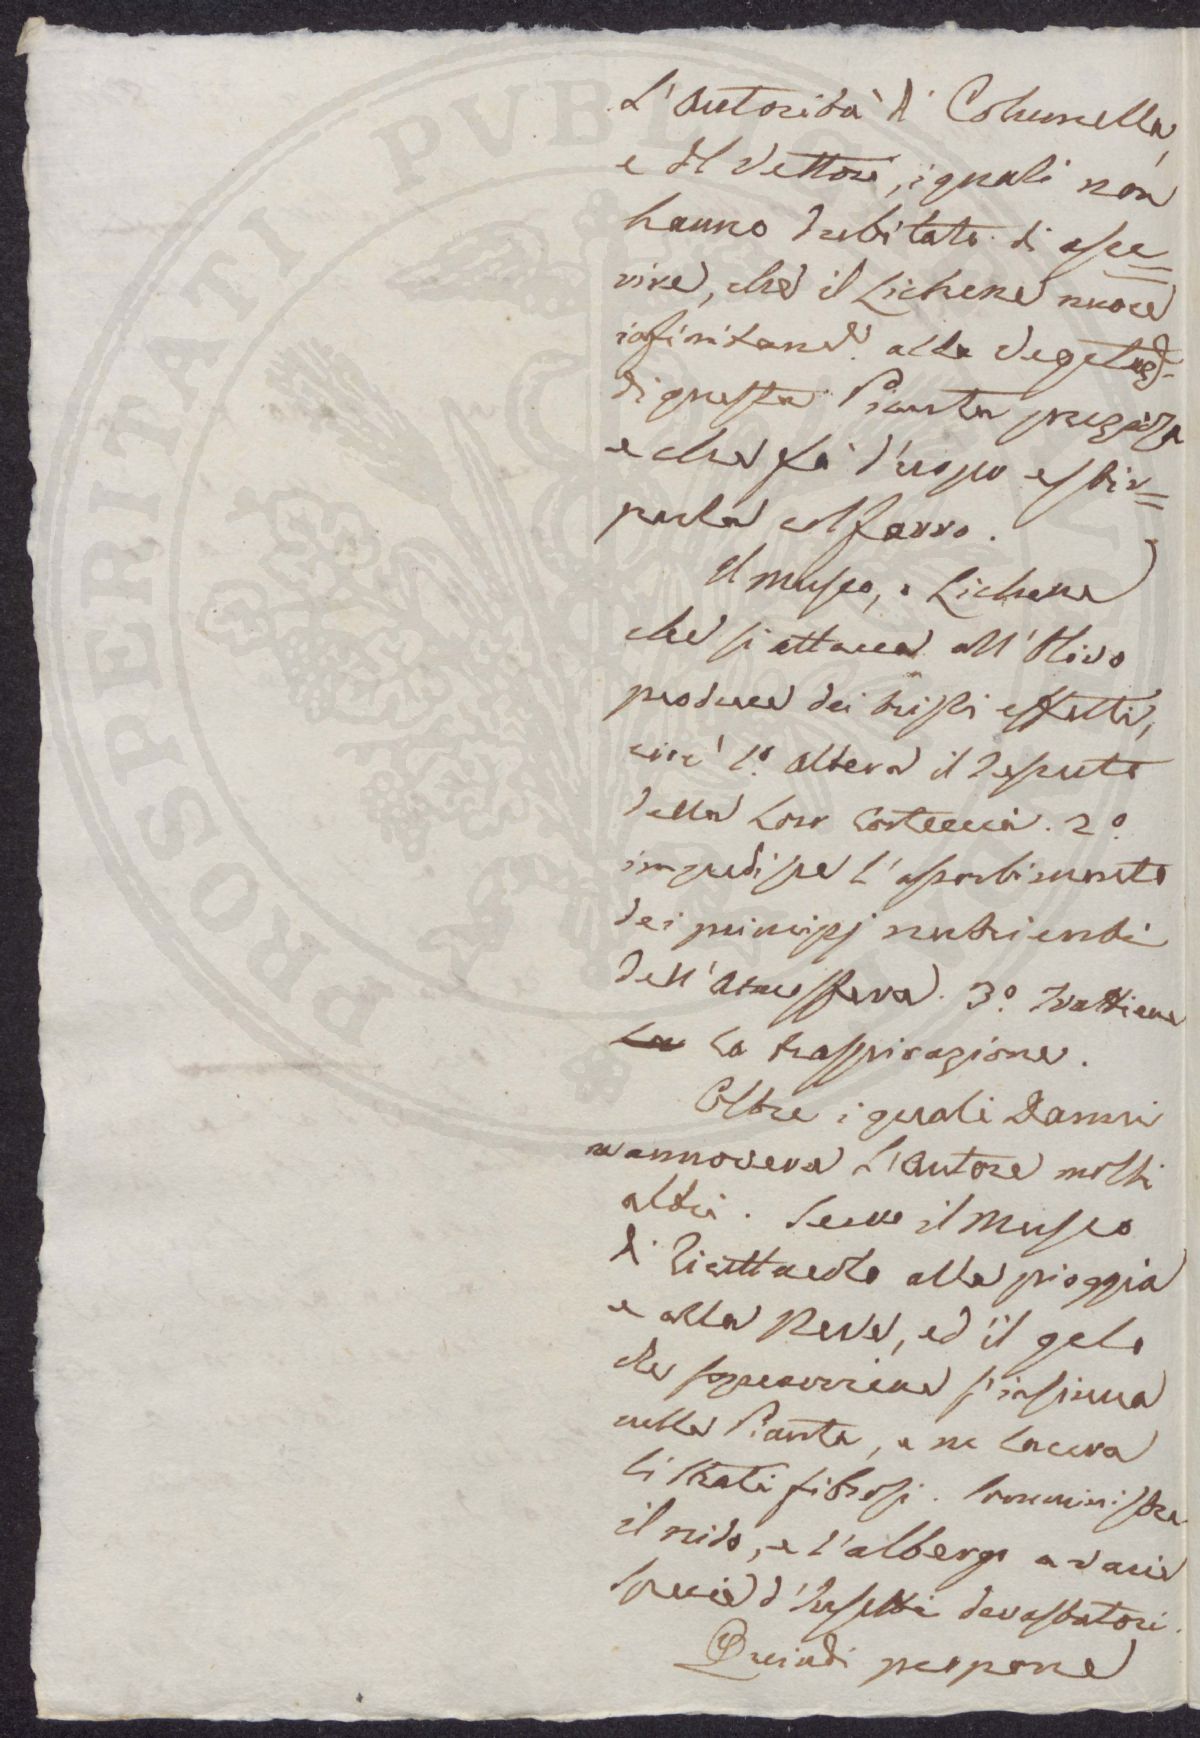 L'Autorità di Columella,
e del Vettori, i quali non
hanno dubitato di asse=
rire, che il Lichene nuoce
infinitame. alla Vegetaz.
di questa Pianta preziosa
e che fa d'uopo estir=
parla col ferro.
Il Musco, o Lichene
che si attacca all'Olivo
produce dei tristi effetti,
cioè 1.º altera il tessuto
della loro Corteccia. 2.º
impedisce l'assorbimento
dei principj nutrienti
dell'Atmosfera. 3.º Trattiene
la la traspirazione.
Oltre i quali Danni
ne annovera l'Autore molti
altri. Serve il Musco
di Ricettacolo alla pioggia
e alla Neve, ed il gelo
che sopravviene s'insinua
nella Pianta, e ne lacera
li strati fibrosi. Somministra
il nido, e l'albergo a varie
specie d'Insetti devastatori.
Quindi propone
PROSPERITATI PVBLICAE